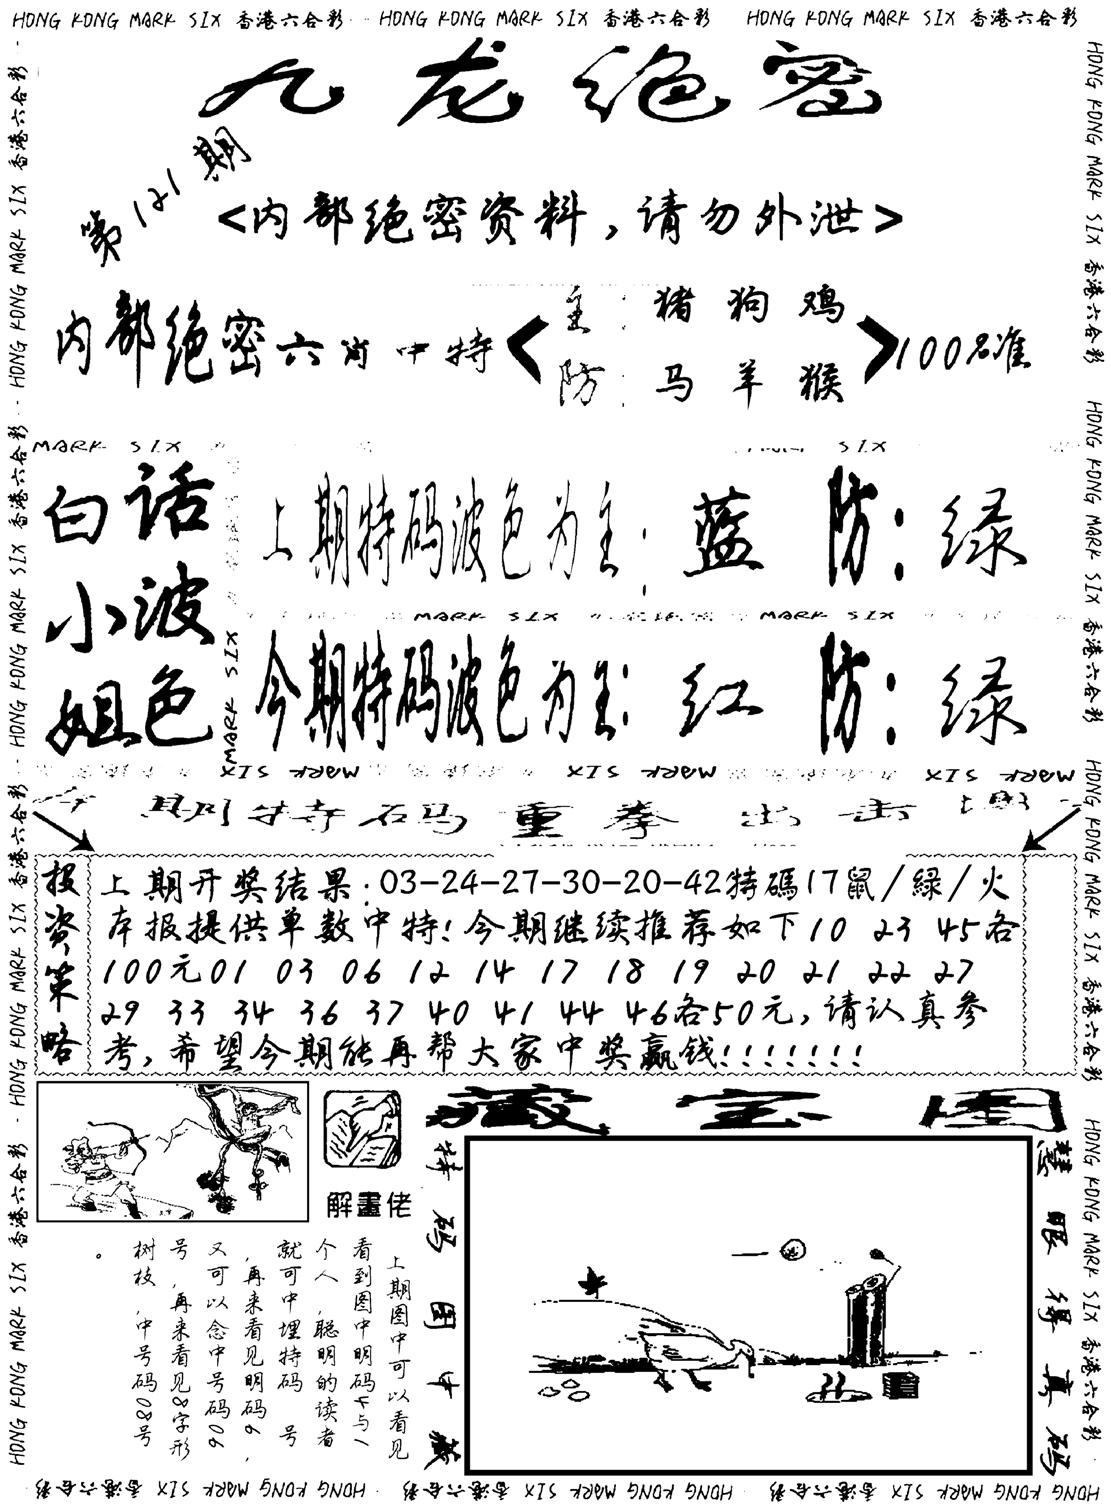 HONG KONG MARK SIX 香港六合彩 HONG KONG MARK SIX 香港六合彩 HONG KONG MARK SIX 香港六合彩
九龙绝密
第121期
<内部绝密资料,请勿外泄>
内部绝密六肖中特
主:猪狗鸡
防:马羊猴
100%准
白话
小波
姐色
上期特码波色为主:蓝 防:绿
MARK SIX MARK SIX
今期特码波色为主:红 防:绿
MARK SIX MARK SIX MARK SIX
期特码重拳出击
投资策略
上期开奖结果:03-24-27-30-20-42特碼17鼠/緑/火
本报提供单数中特!今期继续推荐如下10 23 45各
100元01 03 06 12 14 17 18 19 20 21 22 27
29 33 34 36 37 40 41 44 46各50元,请认真参
考,希望今期能再帮大家中奖赢钱!!!!!!!
解畫佬
上期图中可以看见
看到图中明码4与1
个人,聪明的读者
就可中埋特码 号
,再来看见明码6,
又可以念中号码06
号,再来看见8字形
树枝,中号码08号
。
藏宝图
特码图中藏
慧眼得真码
HONG KONG MARK SIX 香港六合彩 HONG KONG MARK SIX 香港六合彩 HONG KONG MARK SIX 香港六合彩